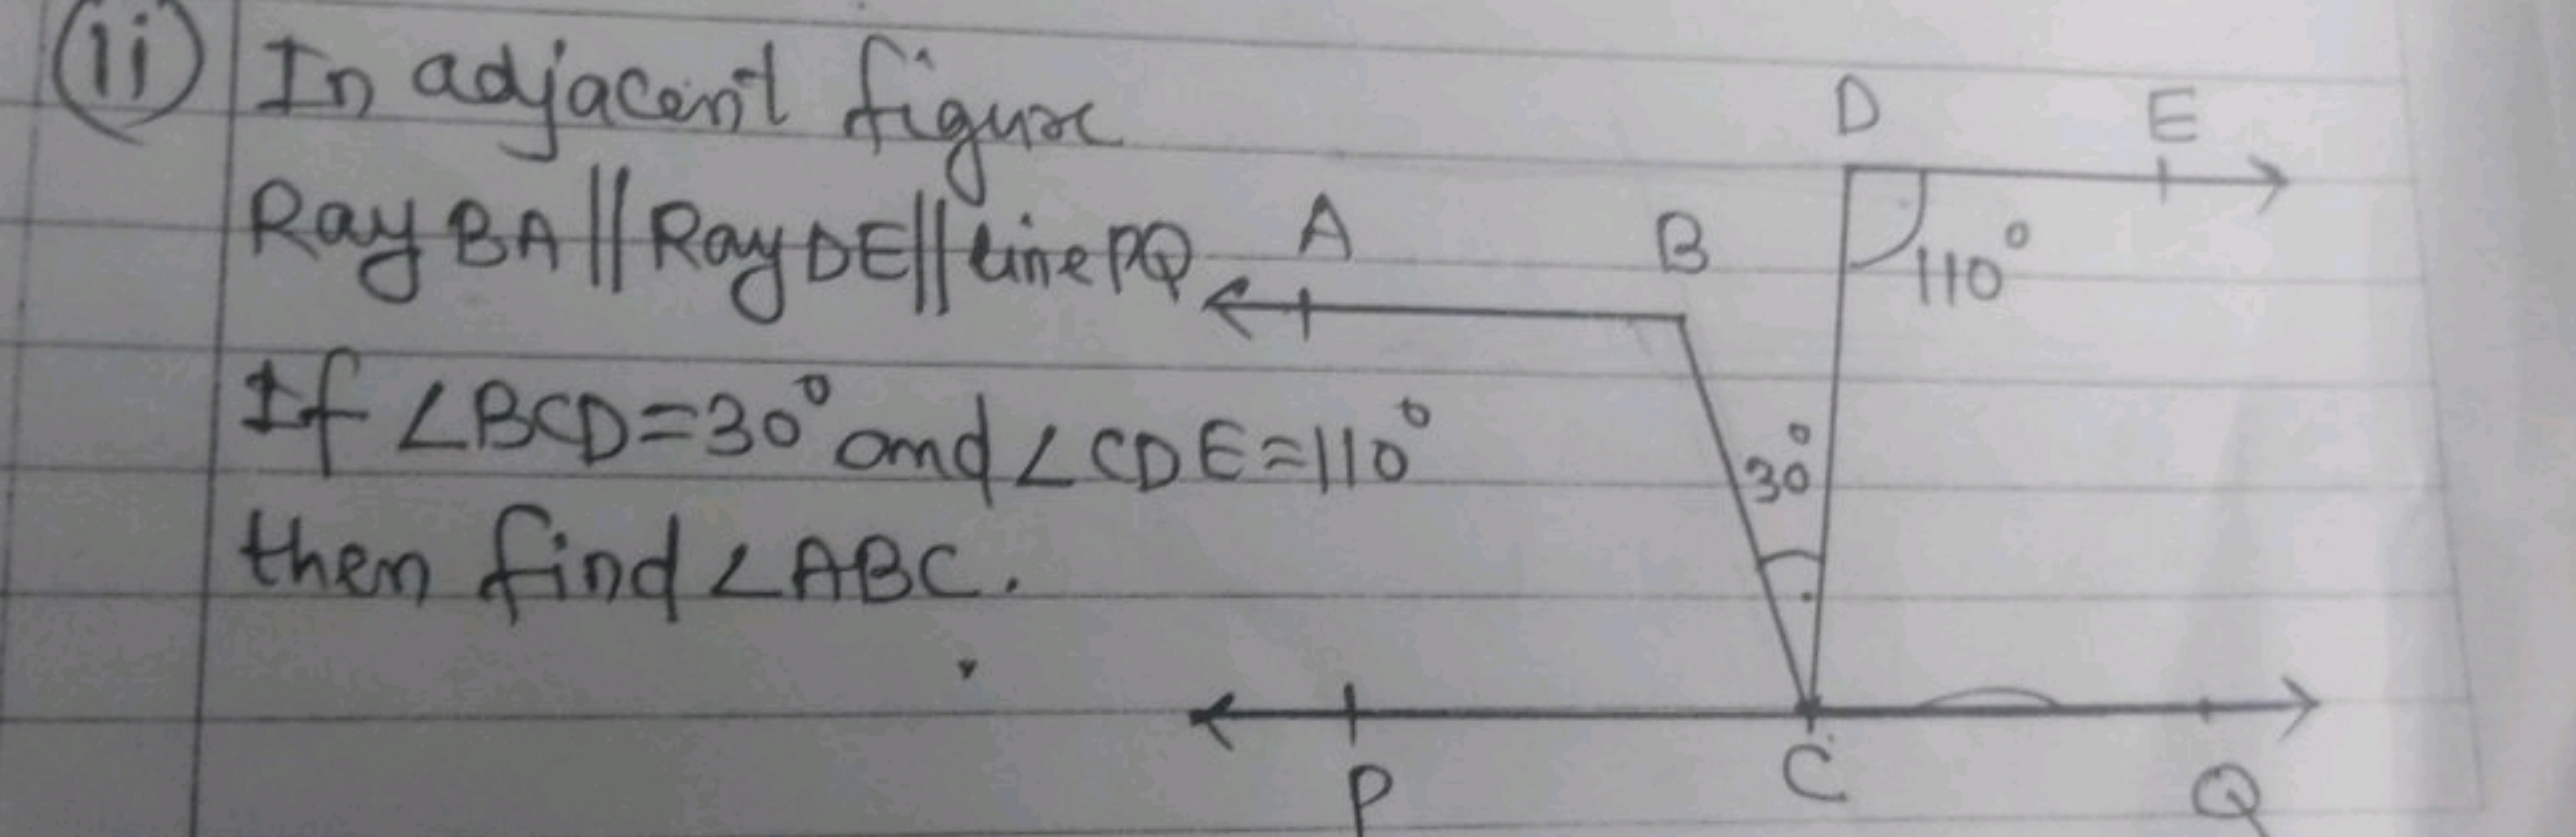 (ii) In adjacent figure
Ray BA || Ray DE || line PQ
If ∠BCD=30° and ∠CDE=110°
then find ∠ABC.
D E
A B
110°
30°
P C Q